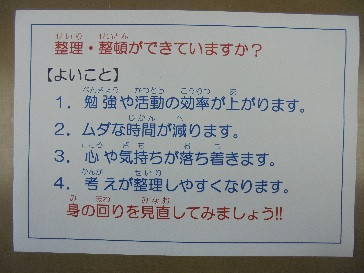 整理・整頓ができていますか？
【よいこと】
1．勉強や活動の効率が上がります。
2．ムダな時間が減ります。
3．心や気持ちが落ち着きます。
4．考えが整理しやすくなります。
身の回りを見直してみましょう!!